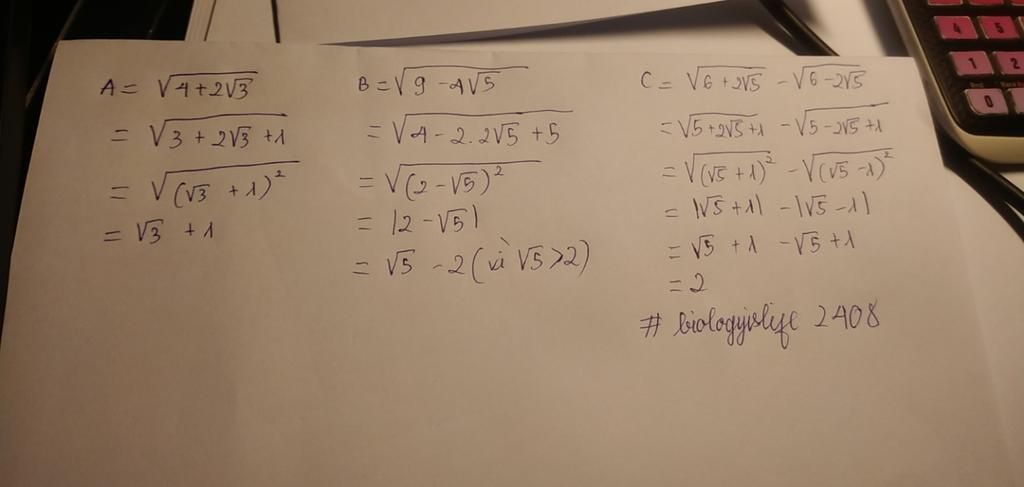 A = √(4 + 2√3)
= √(3 + 2√3 + 1)
= √((√3 + 1)²)
= √3 + 1
B = √(9 - 4√5)
= √(4 - 2.2√5 + 5)
= √((2 - √5)²)
= |2 - √5|
= √5 - 2 (vì √5 > 2)
C = √(6 + 2√5) - √(6 - 2√5)
= √(5 + 2√5 + 1) - √(5 - 2√5 + 1)
= √((√5 + 1)²) - √((√5 - 1)²)
= |√5 + 1| - |√5 - 1|
= √5 + 1 - √5 + 1
= 2
# biologyislife 2408
4 5
1 2
0